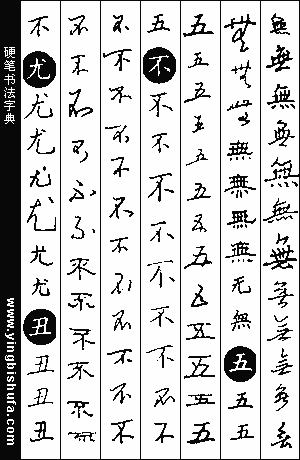 無無無無無無無無無無無無
無無無無無無無无無五五五
五五五五五五五五五五五五五
五不不不不不不不不不不
不不不不不不不不不不不不
不不不不不不不不不不不不
不尤尤尤尤尤尤尤丑丑丑丑
硬笔书法字典
www.yingbishufa.com